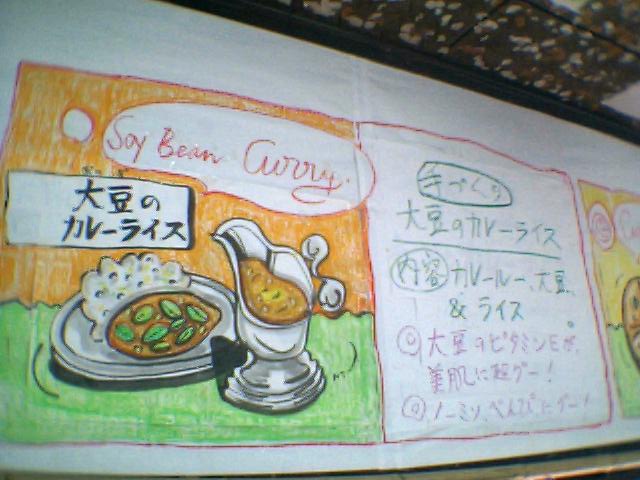 Soy Bean Curry.
大豆の
カレーライス
手づくり
大豆のカレーライス
内容 カレールー、大豆、
& ライス。
大豆のビタミンEが、
美肌に超グー!
ノーミソ、べんぴにグー!